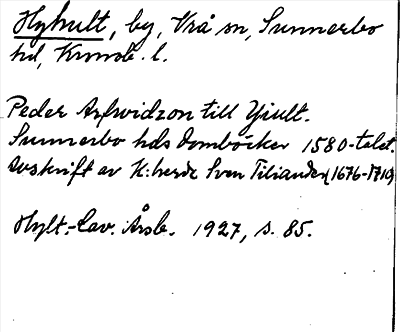 Hyhult, by, Vrå sn, Sunnerbo
hd, Kronob. l.
Peder Arfwidzon till Yiult.
Sunnerbo hds domböcker 1580-talet.
Avskrift av K:herde Sven Tiliander (1676-1710)
Hylt.-Cav. Årsb. 1927, s. 85.